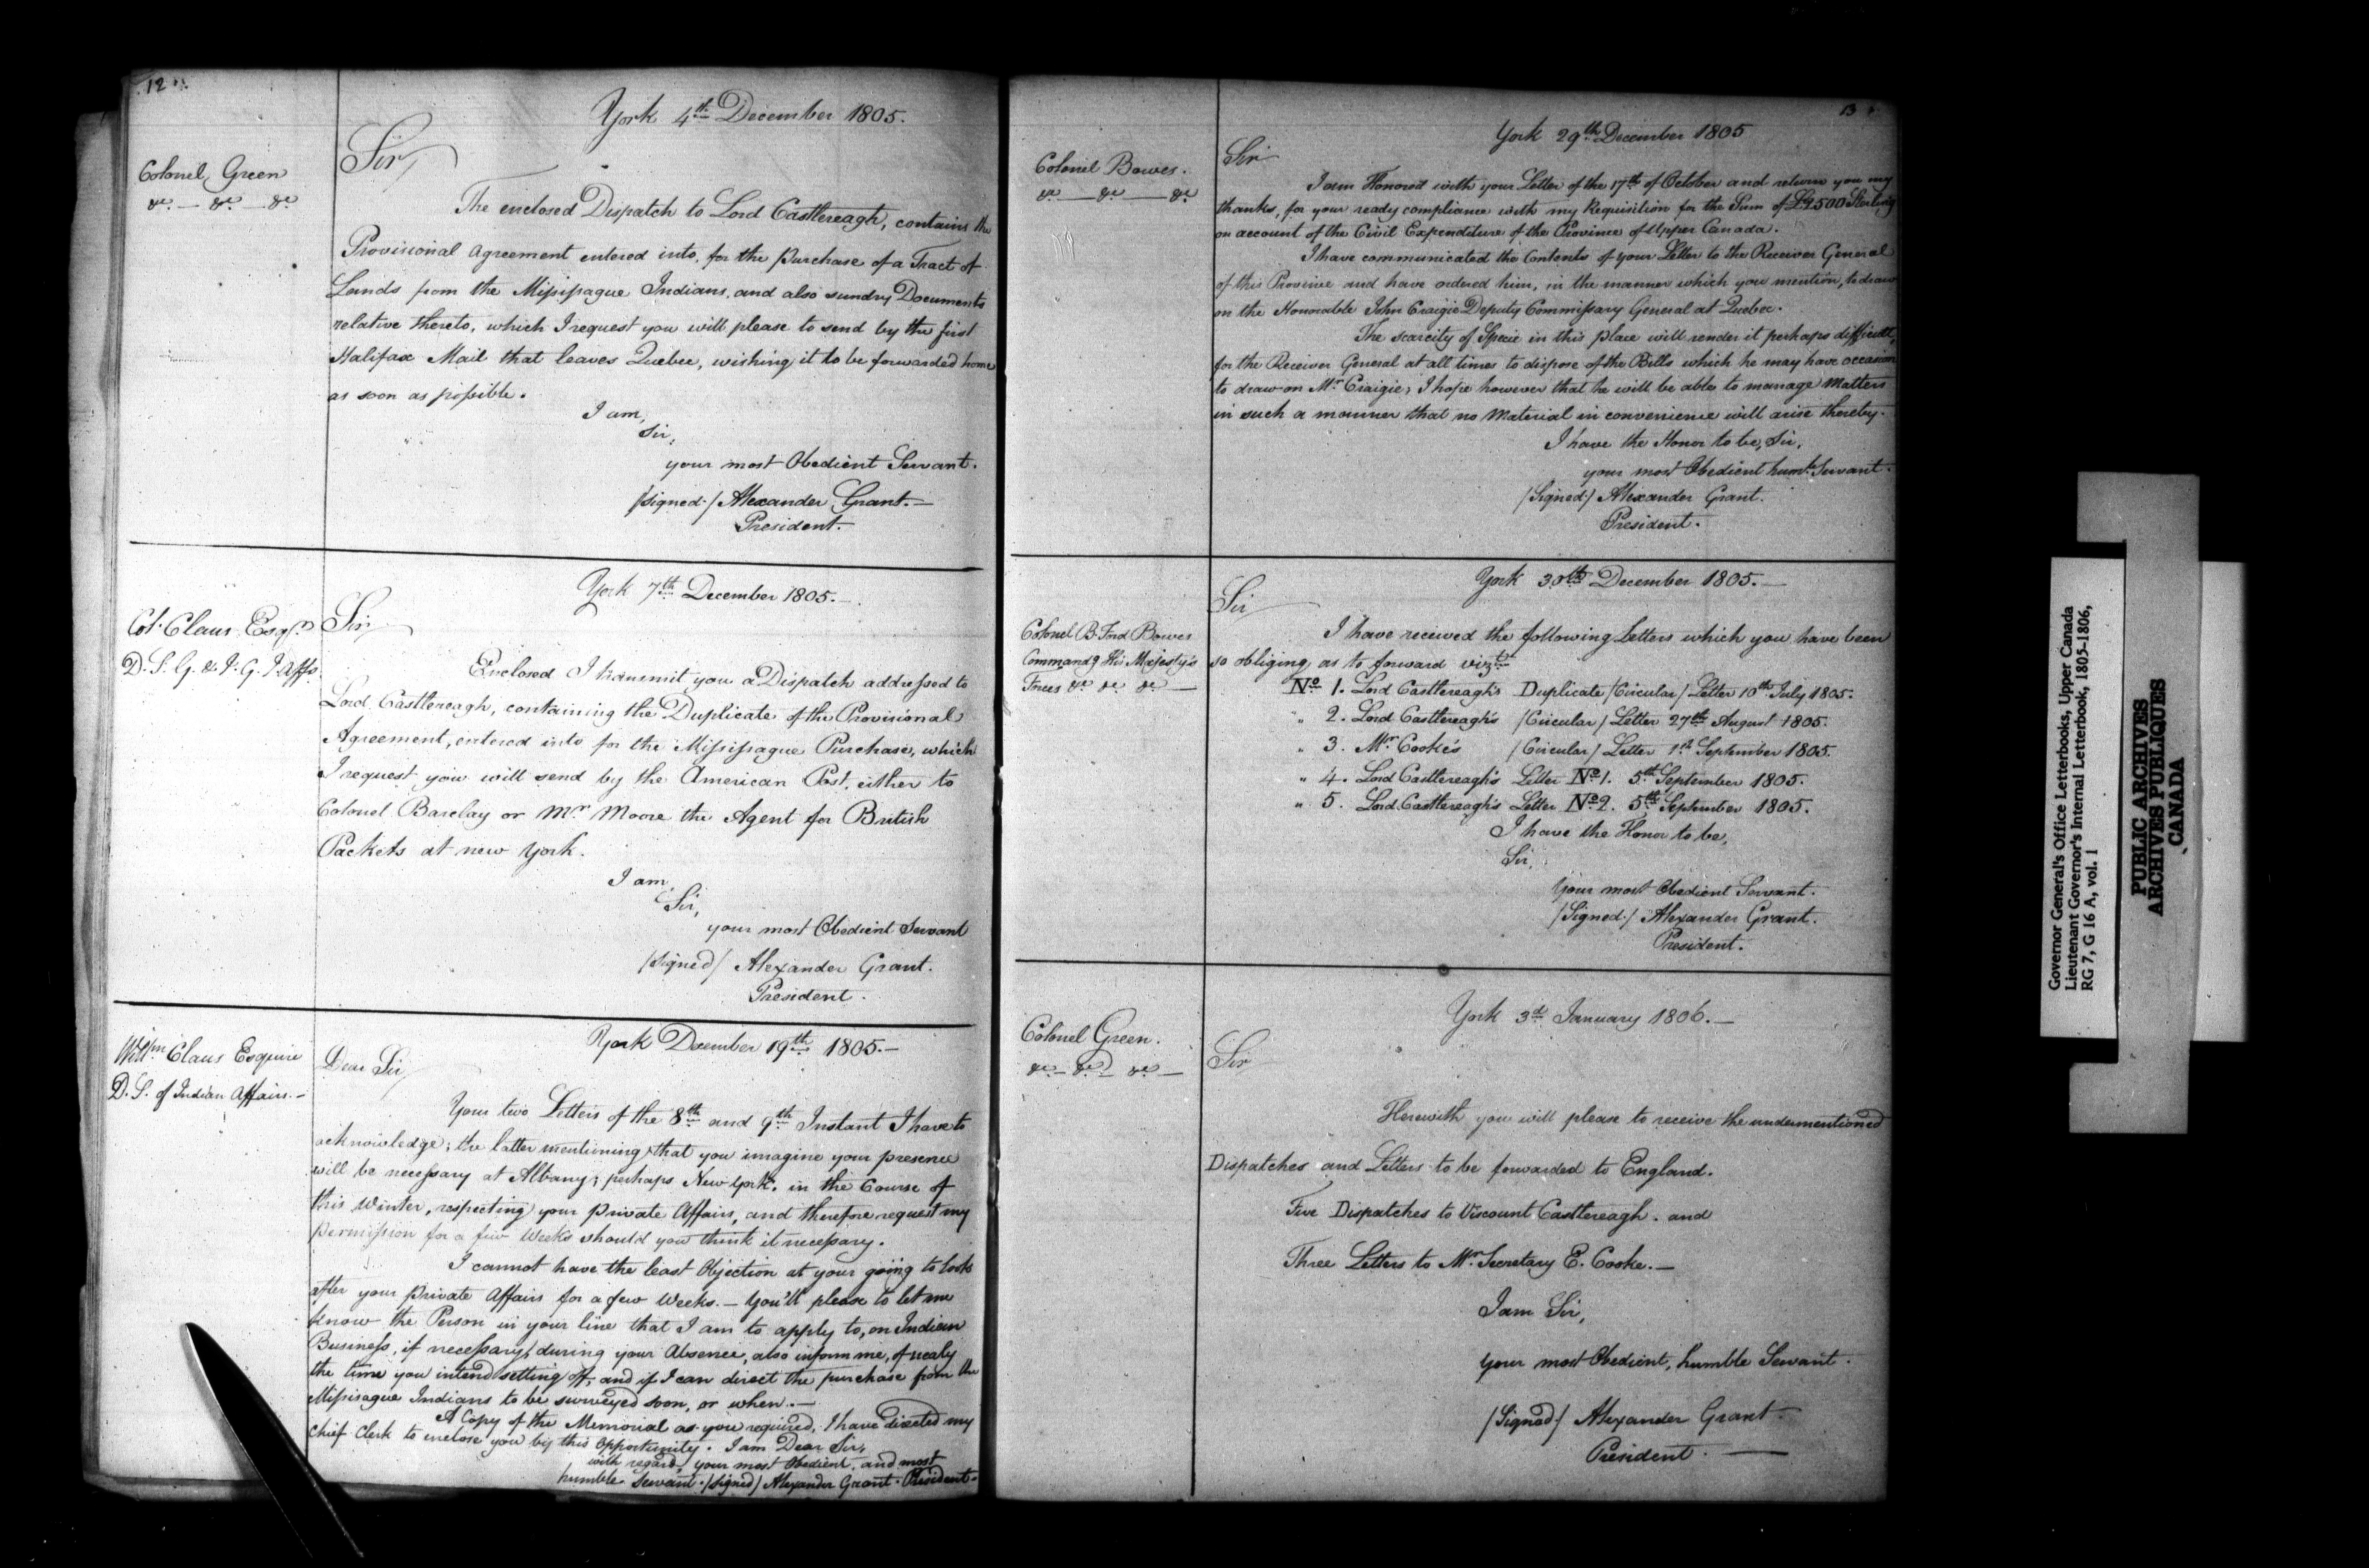 12
York 4th December 1805.
Colonel Green
&c. — &c — &c
Sir,
The enclosed Dispatch to Lord Castlereagh, contains the
Provisional Agreement entered into, for the purchase of a Tract of
Lands from the Missisague Indians, and also sundry Documents
relative thereto, which I request you will please to send by the first
Halifax Mail that leaves Quebec, wishing it to be forwarded home
as soon as possible.
I am,
Sir,
your most Obedient Servant.
/signed./ Alexander Grant. —
President. —
York 7th December 1805. —
Col. Claus Esqr.
D. S. G. & I. G. I. Affs.
Sir,
Enclosed I transmit you a Dispatch addressed to
Lord Castlereagh, containing the Duplicate of the Provisional
Agreement, entered into for the Missisague Purchase, which
I request you will send by the American Post, either to
Colonel Barclay or Mr Moore the Agent for British
Packets at new York.
I am,
Sir,
your most Obedient Servant
/signed/ Alexander Grant.
President.
York December 19th 1805. —
Willm Claus Esquire
D. S. of Indian Affairs. —
Dear Sir,
Your two Letters of the 8th and 9th Instant I have to
acknowledge; the latter mentioning that you imagine your presence
will be necessary at Albany; perhaps New York, in the Course of
this Winter, respecting your private Affairs, and therefore request my
permission for a few Weeks should you think it necessary.
I cannot have the least Objection at your going to look
after your private Affairs for a few Weeks. — You'll please to let me
know the Person in your line that I am to apply to, on Indian
Business, if necessary, during your Absence, also inform me, of nealy
the time you intend setting off, and if I can direct the purchase from the
Missisague Indians to be surveyed soon, or when. —
A Copy of the Memorial as you required, I have directed my
Chief Clerk to enclose you by this opportunity. I am Dear Sir,
with regard, your most Obedient, and most
humble Servant. /signed/ Alexander Grant. President.
13
York 29th December 1805
Colonel Bowes.
&c — &c — &c
Sir
I am Honored with your Letter of the 17th of October and return you my
thanks, for your ready compliance with my Requisition for the Sum of £2500 Sterling
on account of the Civil Expenditure of the Province of Upper Canada.
I have communicated the Contents of your Letter to the Receiver General
of this Province and have ordered him, in the manner which you mention, to draw
on the Honorable John Craigie Deputy Commissary General at Quebec.
The scarcity of Specie in this place will render it perhaps difficult,
for the Receiver General at all times to dispose of the Bills which he may have occasion
to draw on Mr Craigie; I hope however that he will be able to manage Matters
in such a manner that no Material in convenience will arise thereby.
I have the Honor to be, Sir,
your most Obedient humle Servant.
/Signed./ Alexander Grant.
President.
York 30th December 1805. —
Colonel B. Ford Bowes
Commandg His Majesty's
Forces &c &c &c —
Sir
I have received the following Letters which you have been
so obliging as to forward vizt
No 1. Lord Castlereagh's Duplicate /Circular/ Letter 10th July 1805.
" 2. Lord Castlereagh's /Circular/ Letter 27th August 1805.
" 3. Mr Cooke's /Circular/ Letter 1st September 1805.
" 4. Lord Castlereagh's Letter No 1. 5th September 1805.
" 5. Lord Castlereagh's Letter No 2. 5th September 1805.
I have the Honor to be,
Sir,
Your most Obedient Servant.
/Signed./ Alexander Grant.
President.
York 3d January 1806. —
Colonel Green.
&c — &c — &c —
Sir
Herewith you will please to receive the undermentioned
Dispatches and Letters to be forwarded to England.
Five Dispatches to Viscount Castlereagh. and
Three Letters to Mr Secretary E. Cooke. —
I am Sir,
your most Obedient, humble Servant.
/Signed/ Alexander Grant.
President. —
Governor General's Office Letterbooks, Upper Canada
Lieutenant Governor's Internal Letterbook, 1805-1806,
RG 7, G 16 A, vol. 1
PUBLIC ARCHIVES
ARCHIVES PUBLIQUES
CANADA